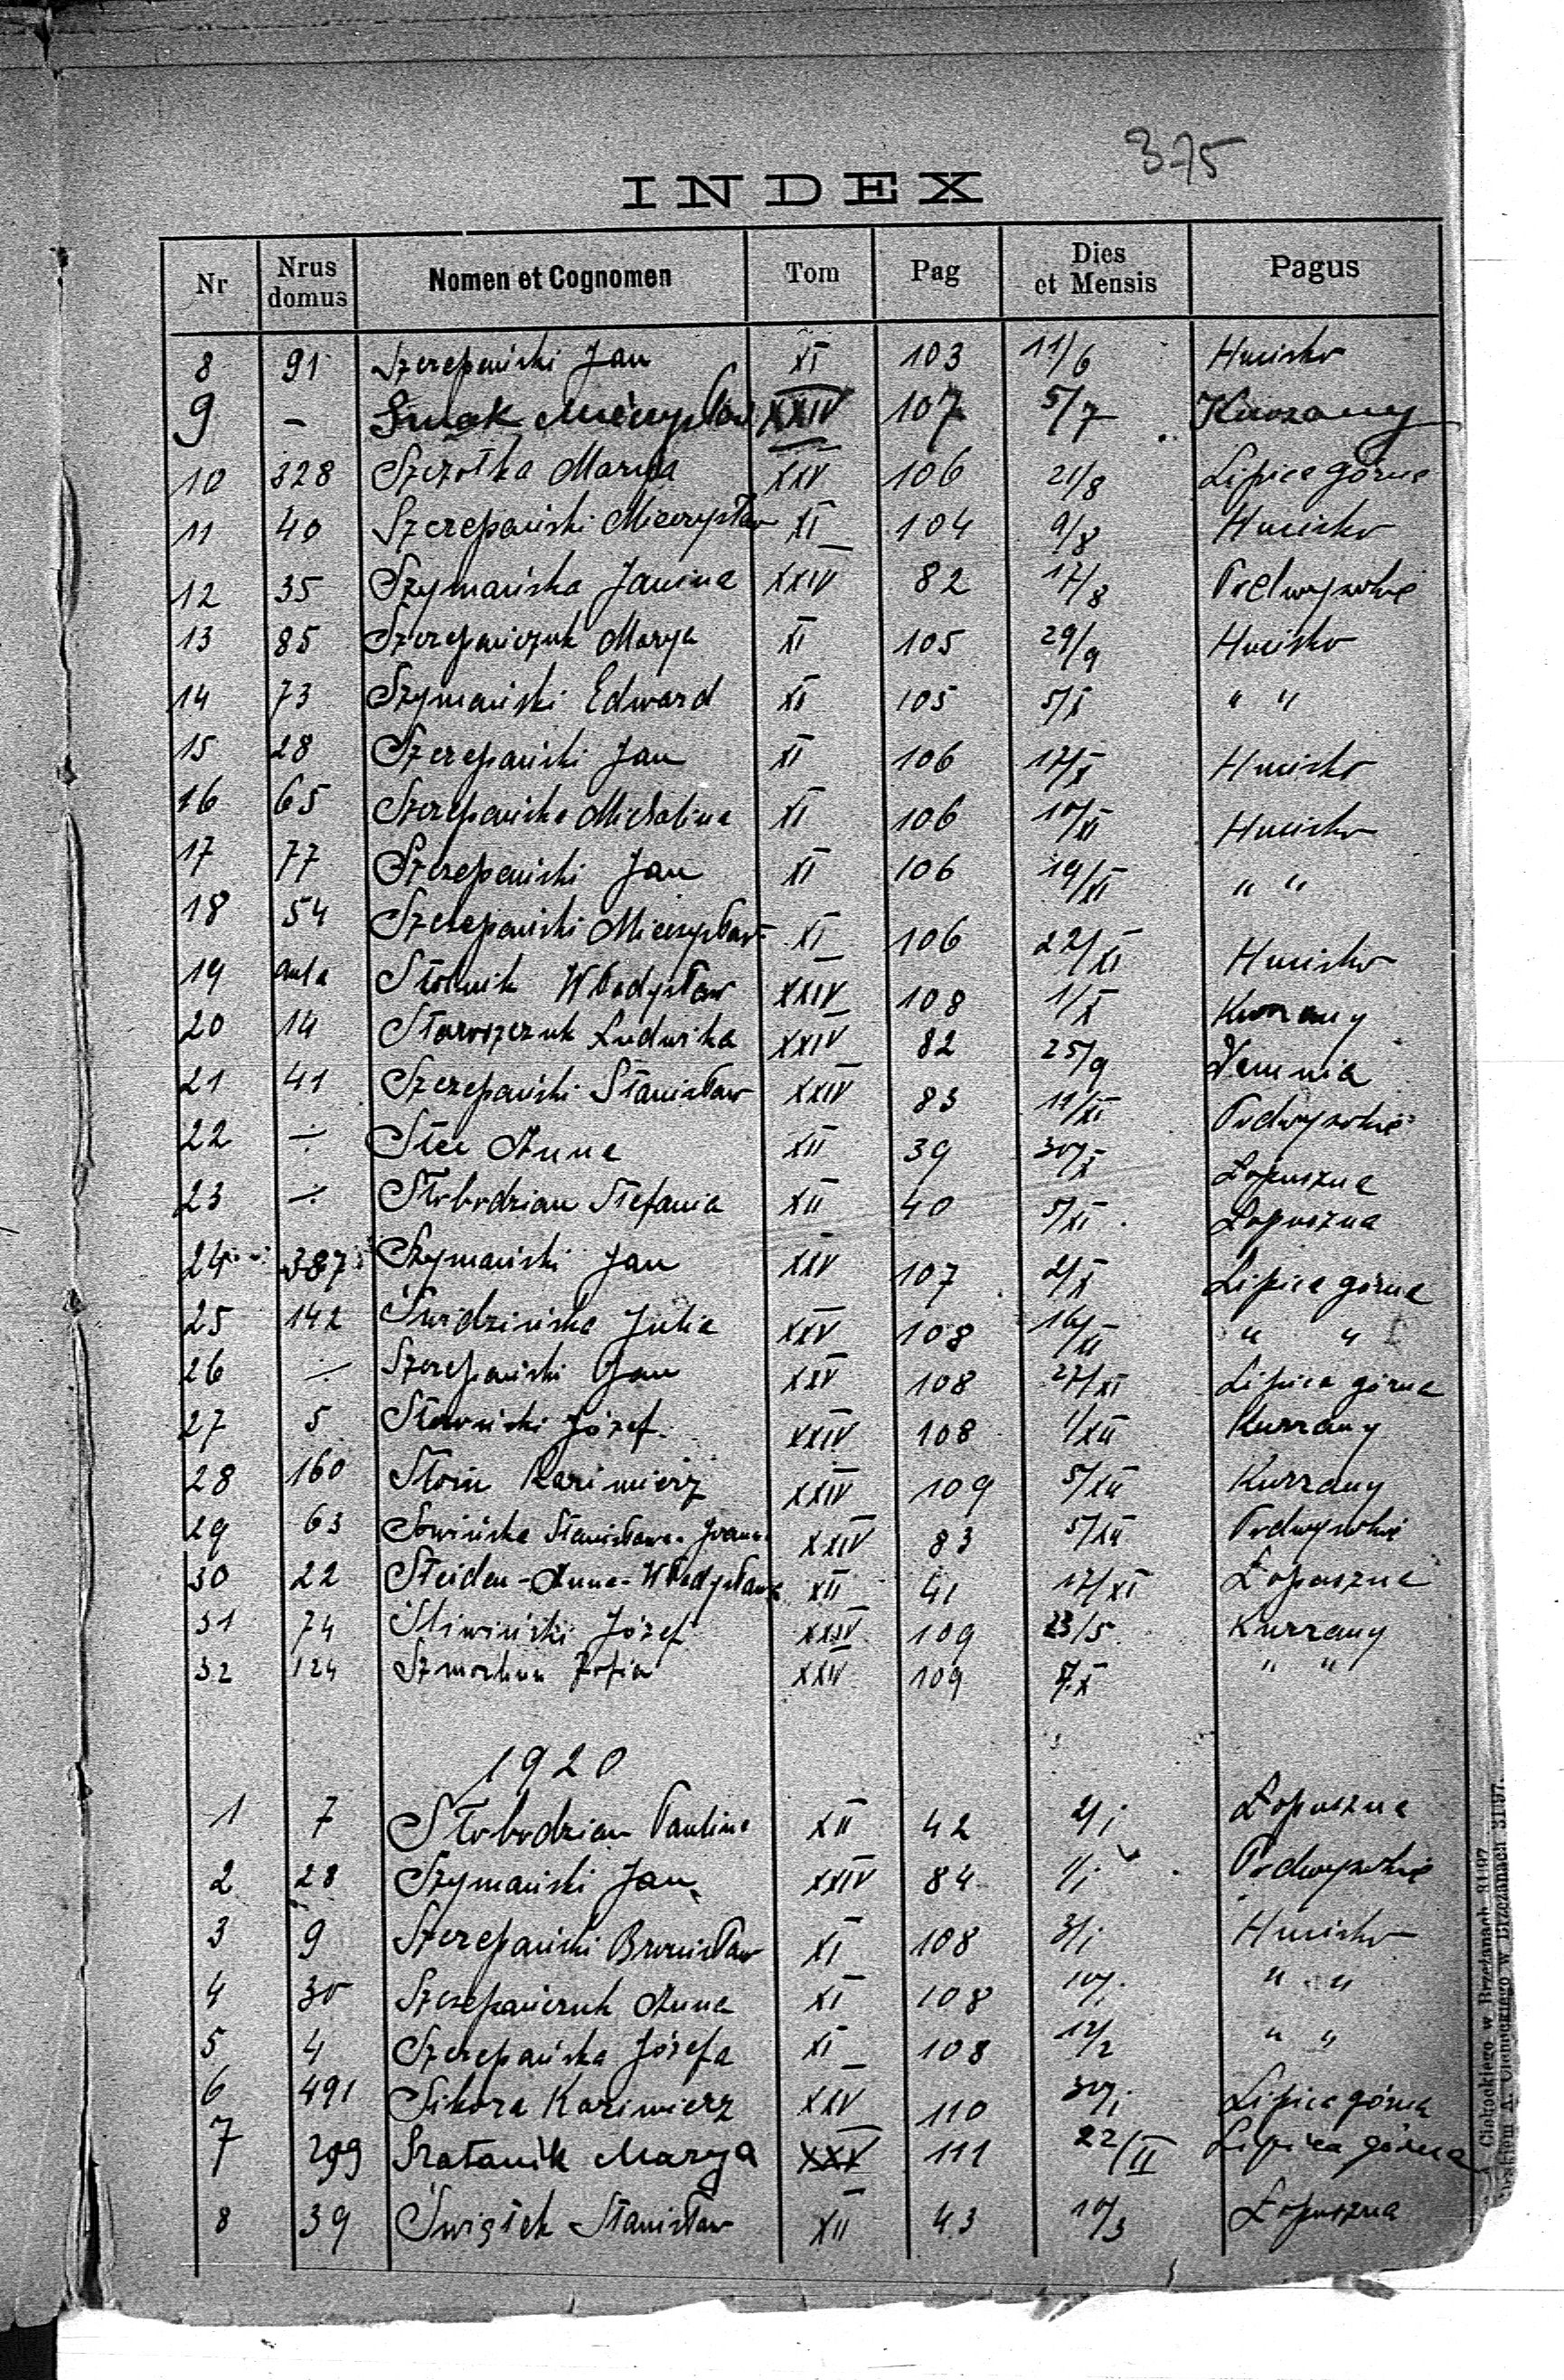 375
INDEX
Nr Nrus domus Nomen et Cognomen Tom Pag Dies et Mensis Pagus
8 91 Szczepański Jan XI 103 11/6 Hucisko
9 - Smak Mieczysław XXIV 107 5/7 Kurzany
10 328 Szczotka Marya XXV 106 21/8 Lipica górna
11 40 Szczepański Mieczysław XI 104 9/8 Hucisko
12 35 Szymańska Janina XXIV 82 17/8 Podwysokie
13 85 Szczepańczuk Marya XI 105 29/9 Hucisko
14 73 Szymański Edward XI 105 5/X " "
15 28 Szczepański Jan XI 106 17/X Hucisko
16 65 Szczepańska Michalina XI 106 10/XI Hucisko
17 77 Szczepański Jan XI 106 19/XI " "
18 54 Szczepański Mieczysław XI 106 22/XI Hucisko
19 aula Władysław XXIV 108 1/X Kurzany
20 14 Staroszczuk Ludwika XXIV 82 25/9 Demnia
21 41 Szczepański Stanisław XXIV 83 11/XI Podwysokie
22 ÷ Stec Anna XII 39 30/X Łopuszna
23 ÷ Słobodzian Stefania XII 40 5/XI Łopuszna
24 387 Szymański Jan XXV 107 2/X Lipica górna
25 142 Świdzińska Julia XXV 108 " "
26 ÷ Szczepański Jan XXV 108 27/XI Lipica górna
27 5 Józef XXIV 108 1/XII Kurzany
28 160 Kazimierz XXIV 109 5/XII Kurzany
29 63 Sowińska Stanisława-Joanna XXIV 83 5/XII Podwysokie
30 22 Steiden-Anna-Władysława XII 41 17/XI Łopuszna
31 74 Śliwiński Józef XXIV 109 23/5 Kurzany
32 124 Zofia XXIV 109 5/X " "
1920
1 7 Słobodzian Paulina XII 42 2/I Łopuszna
2 28 Szymański Jan XXIV 84 1/I Podwysokie
3 9 Szczepański Bronisław XI 108 3/I Hucisko
4 30 Szczepańczuk Anna XI 108 10/I " "
5 4 Szczepańska Józefa XI 108 12/2 " "
6 491 Sikora Kazimierz XXV 110 30/I Lipica górna
7 299 Szatanik Marya XXV 111 22/II Lipica górna
8 39 Świątek Stanisław XII 43 10/3 Łopuszna